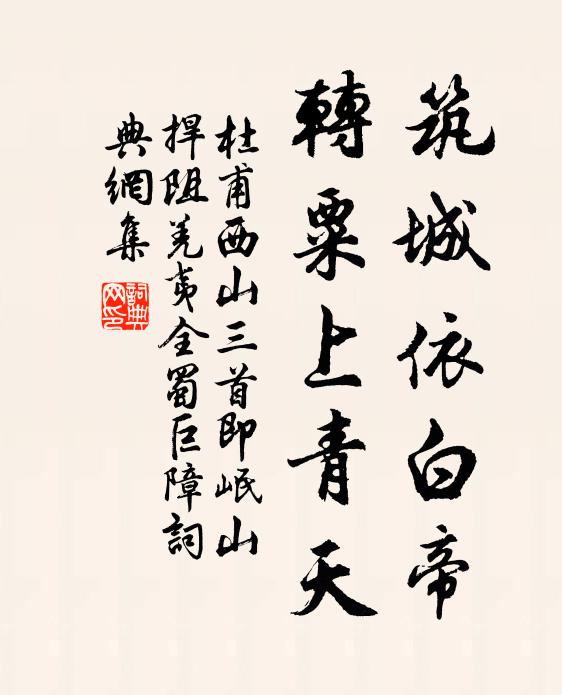 筑城依白帝
轉粟上青天
杜甫西山三首即岷山
捍阻羌夷全蜀巨障詞
典網集
詞典
网印